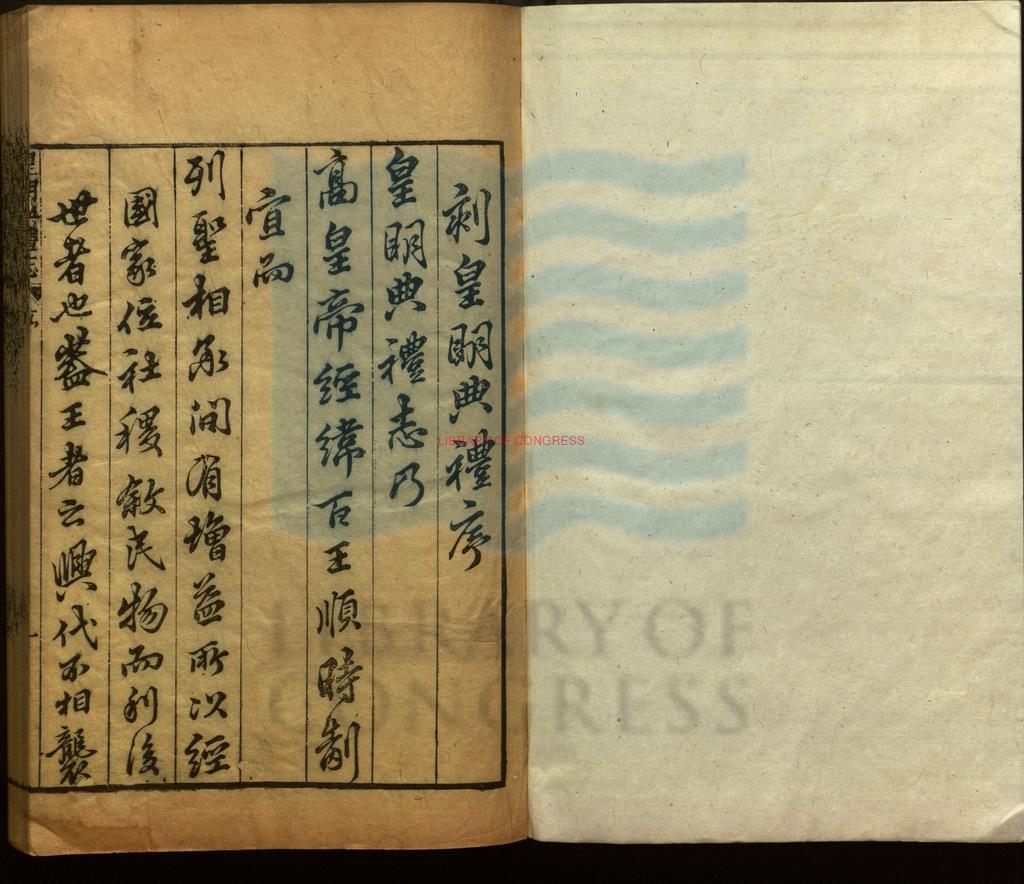 刻皇明典禮序
皇明典禮志乃
高皇帝經緯百王順時制
宜而
列聖相承間有增益所以經
國家位社稷敘民物而利後
世者也蓋王者云興代不相襲
LIBRARY OF CONGRESS
LIBRARY OF
CONGRESS